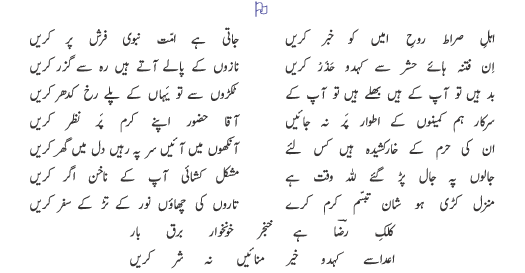 اہلِ صراط روحِ امیں کو خبر کریں جاتی ہے امّت نبوی فرش پر کریں
اِن فتنہ ہائے حشر سے کہدو حَذَر کریں نازوں کے پالے آتے ہیں رہ سے گزر کریں
بد ہیں تو آپ کے ہیں بھلے ہیں تو آپ کے ٹکڑوں سے تو یَہاں کے پلے رخ کدھر کریں
سرکار ہم کمینوں کے اطوار پَر نہ جائیں آقا حضور اپنے کرم پَر نظر کریں
ان کی حرم کے خارکشیدہ ہیں کس لئے آنکھوں میں آئیں سر پہ رہیں دل میں گھر کریں
جالوں پہ جال پڑ گئے للہ وقت ہے مشکل کشائی آپ کے ناخن اگر کریں
منزل کڑی ہو شان تبسّم کرم کرے تاروں کی چھاؤں نور کے تڑ کے سفر کریں
کلکِ رضؔا ہے خنجر خونخوار برق بار
اعداسے کہدو خیر منائیں نہ شر کریں